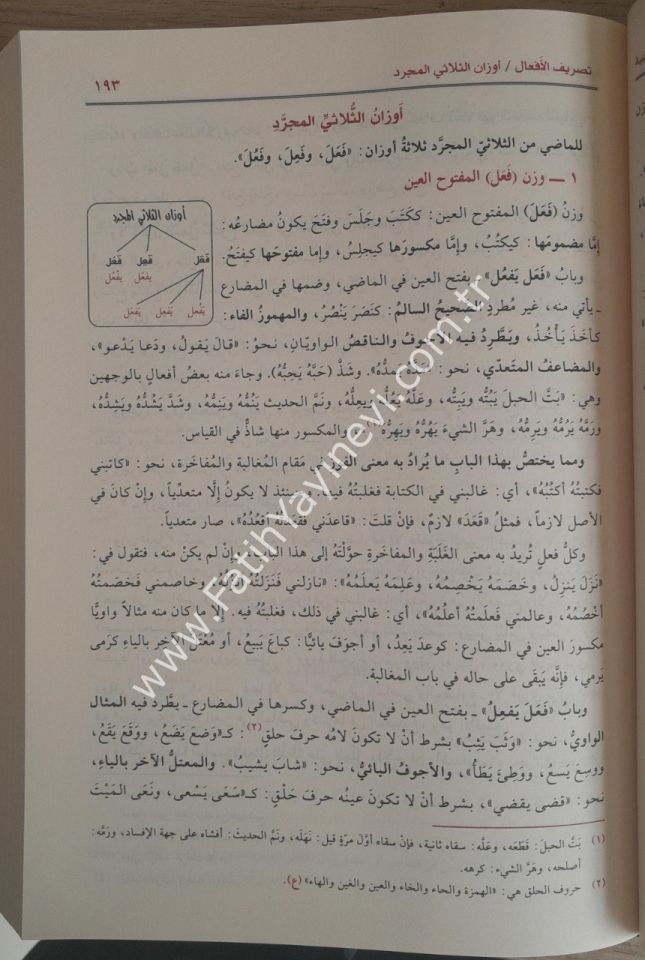 تصريف الأفعال / أوزان الثلاثي المجرد
١٩٣
أَوزانُ الثُّلاثيِّ المجرَّدِ
للماضي من الثلاثيّ المجرَّد ثلاثةُ أوزان: «فَعَلَ، وفَعِلَ، وفَعُلَ».
١ ــ وزن (فَعَل) المفتوح العين
وزنُ (فَعَلَ) المفتوح العين: ككَتَبَ وجَلَسَ وفتَحَ يكونُ مضارعُه:
إمَّا مضمومَها: كيكتُبُ، وإمَّا مكسورَها كيجلِسُ، وإما مفتوحَها كيفتَحُ.
أوزان الثلاثي المجرد
فَعَلَ فَعِلَ فَعُلَ
يفعَل يفعُل
يَفْعُل يَفْعِل يَفْعَل
وبابُ «فَعَل يَفعُل» ـ بفتح العين في الماضي، وضمها في المضارع
ـ يأتي منه، غير مُطردٍ الصَّحيحُ السالمُ: كنَصَرَ يَنْصُرُ، والمهموزُ الفاء:
كأخَذَ يَأخُذُ، ويَطَّرِدُ فيه الأجوفُ والناقصُ الواويّانِ، نحوُ: «قالَ يَقولُ، ودَعا يَدعو»،
والمضاعف المتعدّي، نحو: يمُدُّه». وشَذَّ (حَبَّهُ يَحِبُّهُ). وجاءَ منه بعضُ أفعالٍ بالوجهينِ
وهي: «بَتَّ الحبلَ يَبُتُّه ويَبِتُّه، وعَلَّهُ يَعُلُّه ويعِلُّه، ونَمَّ الحديث يَنُمُّه ويَنِمُّه، وشَدَّ يَشُدُّه ويَشِدُّه،
ورَمَّه يَرُمُّه ويَرِمُّه، وهَرَّ الشيءَ يَهُرُّه ويَهِرُّه»(١)، والمكسور منها شاذٌّ في القياس.
ومما يختصُّ بهذا البابِ ما يُرادُ به معنى الفوز في مَقام المُغالبة والمُفاخَرة، نحو: «كاتبني
فكتبتُهُ أكتُبُهُ»، أي: غالبني في الكتابة فغلبتُهُ فيها. وحينئذ لا يكونُ إلَّا متعدِّياً، وإنْ كانَ في
الأصل لازماً، فمثلُ «قَعَدَ» لازمٌ، فإنْ قلتَ: «قاعدَني فقعَدتُهُ أقعُدُهُ»، صار متعدياً.
وكلُّ فعلٍ تُريدُ به معنى الغَلَبَةِ والمفاخَرةِ حوَّلْتَهُ إلى هذا الباب، وإنْ لم يكنْ منه، فتقول في:
«نَزَلَ يَنزِلُ، وخَصَمَهُ يَخْصِمُهُ، وعَلِمَهُ يَعلَمُهُ»: «نازلني فَنَزَلتُهُ أنزُلُهُ، وخاصمني فخصَمتُهُ
أخْصُمُهُ، وعالمني فعلَمتُهُ أعلُمُهُ»، أي: غالبَني في ذلك، فغلبتُهُ فيه. إلا ما كان منه مثالاً واويًّا
مكسورَ العين في المضارع: كوعدَ يَعِدُ، أو أجوَفَ يائيًّا: كباعَ يَبيعُ، أو مُعْتَلَّ الآخر بالياءِ كرَمى
يَرمي، فإنَّه يَبقى على حاله في باب المغالبة.
وبابُ «فَعَلَ يَفعِلُ» ـ بفتح العين في الماضي، وكسرها في المضارع ـ يطَّرد فيه المثال
الواويُّ، نحو: «وَثَبَ يَثِبُ» بشرط أنْ لا تكونَ لامُه حرفَ حلقٍ(٢): كـ«وَضعَ يَضَعُ، ووَقَعَ يَقَعُ،
ووسِعَ يَسعُ، ووَطِئَ يَطَأُ»، والأجوفُ اليائيُّ، نحو: «شابَ يشيبُ». والمعتلُّ الآخر بالياءِ،
نحو: «قضى يقضي»، بشرط أنْ لا تكونَ عينُه حرفَ حَلْقٍ: كـ«سَعَى يَسْعى، ونَعَى المَيْتَ
(١) بَتَّ الحبلَ: قَطَعَه، وعَلَّه: سقاه ثانية، فإنْ سقاه أوّلَ مرّةٍ قيل: نَهَلَه، ونَمَّ الحديثَ: أفشاه على جهة الإفساد، ورَمَّه:
أصلحه، وهَرَّ الشيءَ: كرهه.
(٢) حروف الحلق هي: «الهمزة والحاء والخاء والعين والغين والهاء» (ع).
www.FatihYayinevi.com.tr